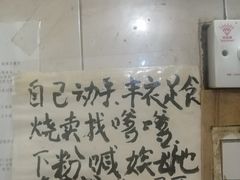 自己动手,丰衣足食
烧卖找嗲嗲
下粉喊娭毑